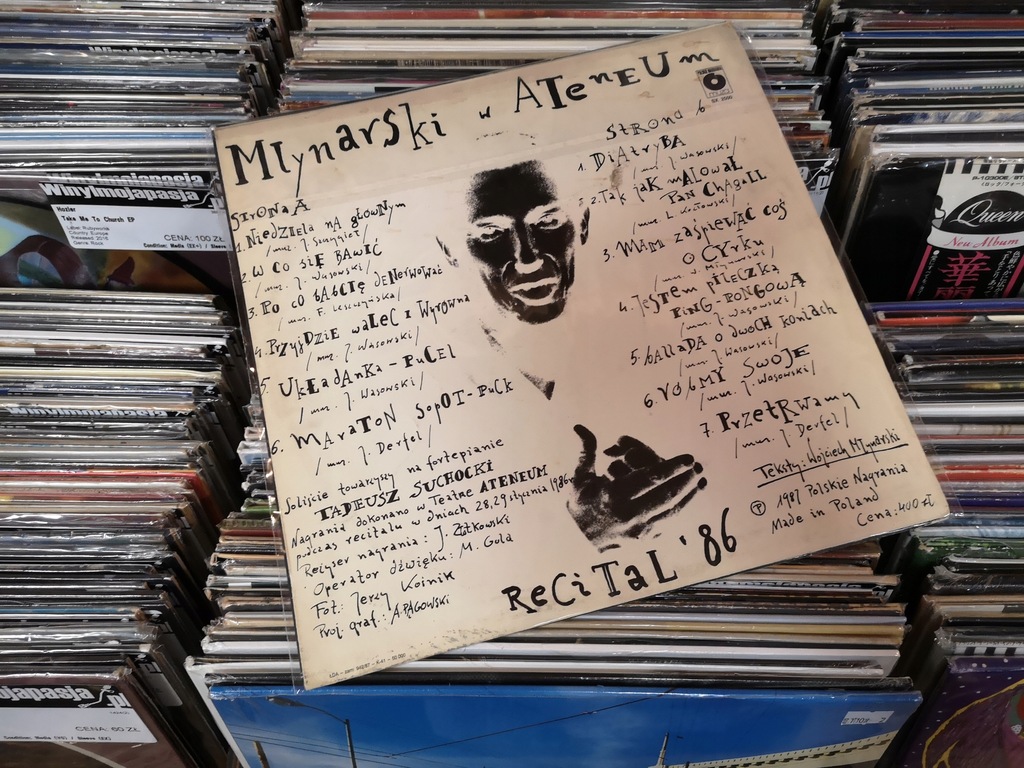 Młynarski w ATeneUm
SX 2500
StRONA A
1. NiEDZiELa NA GŁÓWNYM
/muz. J.
2. W CO SIĘ BAWIĆ
/muz. J. Wasowski/
3. PO CO BABCIĘ DENERWOWAĆ
/muz. F. Leszczyńska/
4. PRZYJDZIE WALEC I WYRÓWNA
/muz. J. Wasowski/
5. UKŁADANKA - PUCEL
/muz. J. Wasowski/
6. MARATON SOPOT-PUCK
/muz. J. Derfel/
StRONA b
1. DiAtRYBA
/muz. J. Wasowski/
2. TAK JAK MALOWAŁ
PAN CHAGALL
/muz. L. Kozłowski/
3. MAM ZAŚPIEWAĆ COŚ
O CYRKU
4. JESTEM PIŁECZKĄ
PING-PONGOWĄ
/muz. J. Wasowski/
5. BALLADA O DWÓCH KONIACH
/muz. J. Wasowski/
6. RÓBMY SWOJE
/muz. J. Wasowski/
7. PRZETRWAMY
/muz. J. Derfel/
Teksty: Wojciech Młynarski
Ⓟ 1987 Polskie Nagrania
Made in Poland
Cena: 400 zł
Soliście towarzyszy na fortepianie
TADEUSZ SUCHOCKI
Nagrania dokonano w Teatrze ATENEUM
podczas recitalu w dniach 28,29 stycznia 1986r
Reżyser nagrania: J. Złotkowski
Operator dźwięku: M. Gola
Fot.: Jerzy Kośnik
Proj. graf.: A. PĄGOWSKI
ReCiTaL '86
Winylmojapasja
Winylmojapasja
Hozier
Take Me To Church EP
Label: Rubyworks
Country: Europe
Released: 2015
Genre: Rock
CENA: 100 ZŁ
Condition: Media (EX+) / Sleeve
P-10300E
Queen
New Album
華麗
CENA: 60 ZŁ